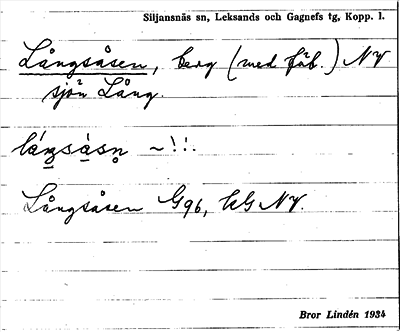 Siljansnäs sn, Leksands och Gagnefs tg, Kopp. l.
Långsåsen, berg (med fäb.) NV
sjön Lång.
Långsåsen G96, kG NV.
Bror Lindén 1934